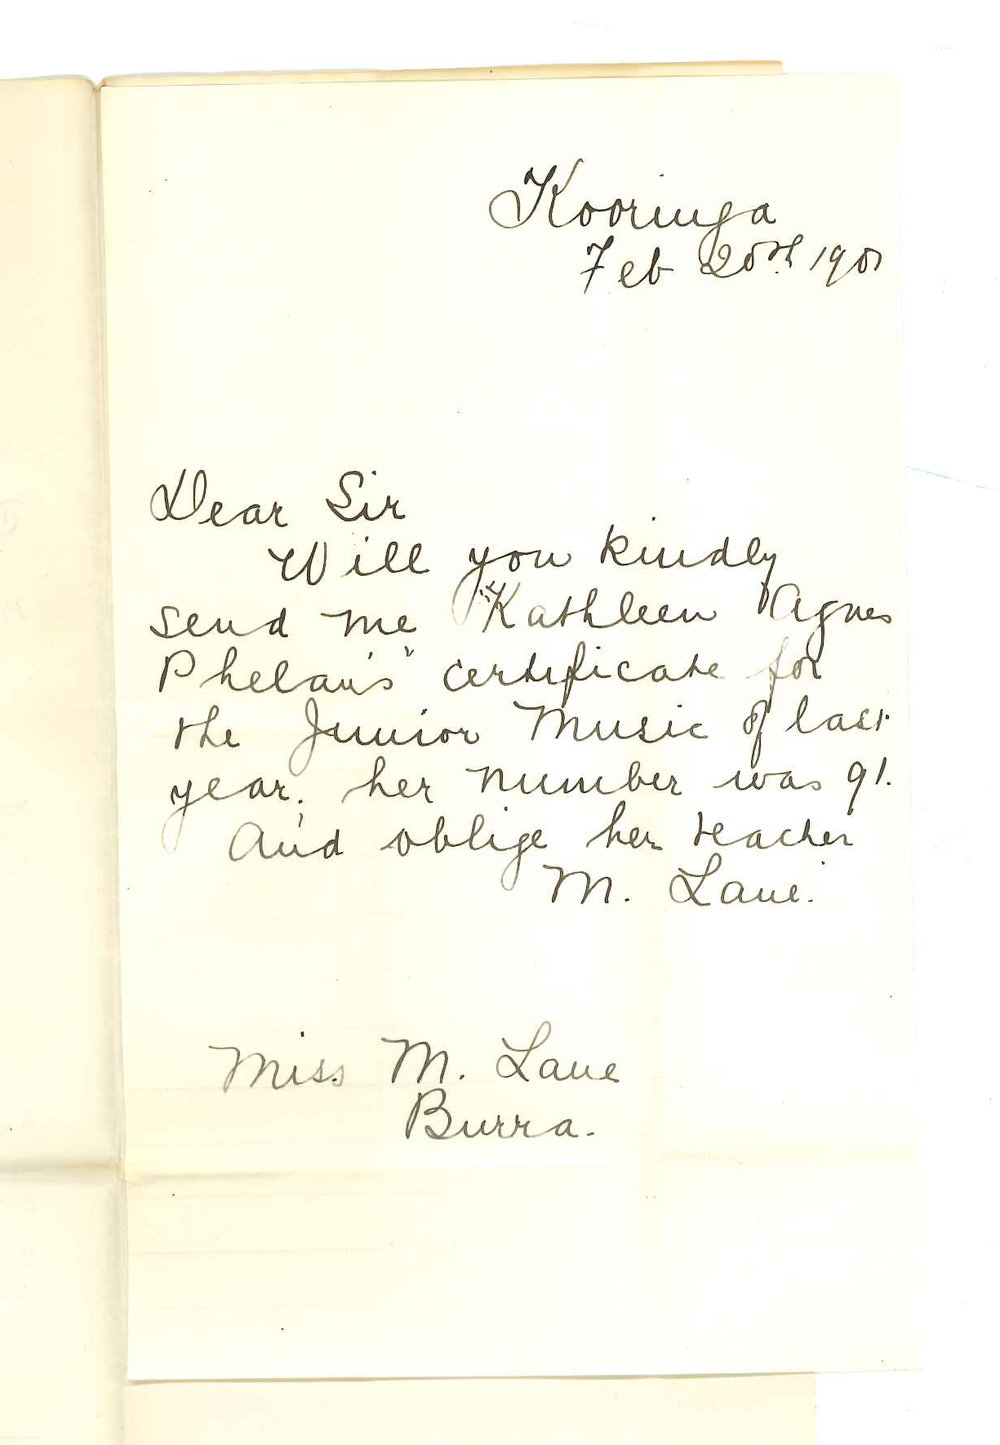 Kooringa
Feb 20th 1901
Dear Sir
Will you kindly
send me "Kathleen Agnes
Phelan's" certificate for
the Junior Music of last
year. her number was 91.
And oblige her teacher
M. Lane.
Miss M. Lane
Burra.